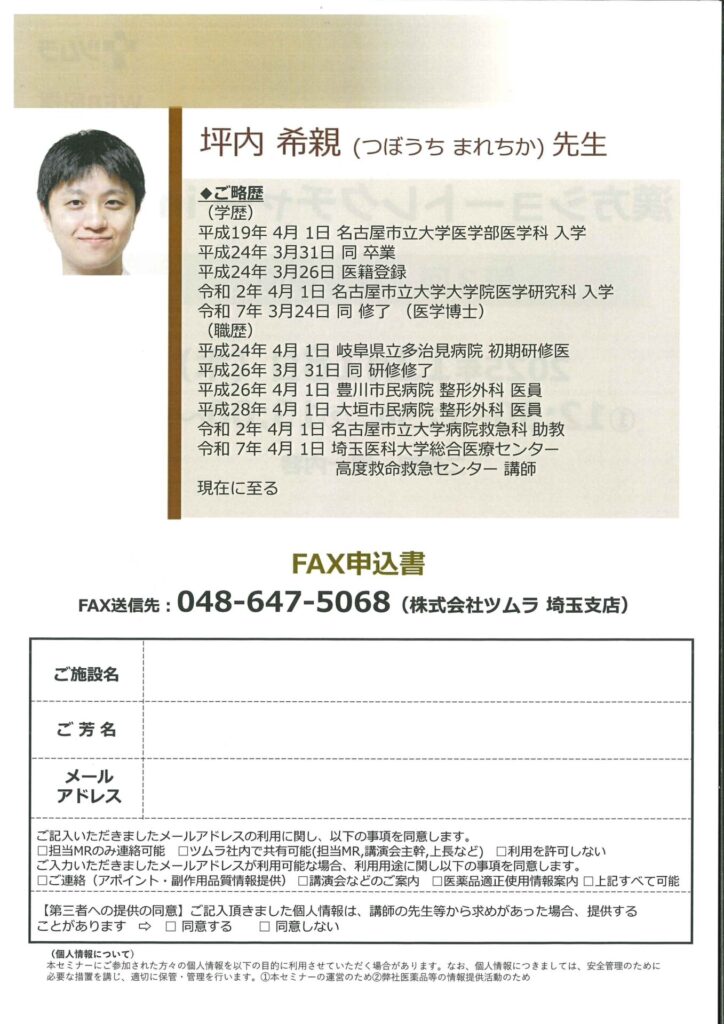 坪内 希親 (つぼうち まれちか) 先生
◆ご略歴
（学歴）
平成19年 4月 1日 名古屋市立大学医学部医学科 入学
平成24年 3月31日 同 卒業
平成24年 3月26日 医籍登録
令和 2年 4月 1日 名古屋市立大学大学院医学研究科 入学
令和 7年 3月24日 同 修了 （医学博士）
（職歴）
平成24年 4月 1日 岐阜県立多治見病院 初期研修医
平成26年 3月 31日 同 研修修了
平成26年 4月 1日 豊川市民病院 整形外科 医員
平成28年 4月 1日 大垣市民病院 整形外科 医員
令和 2年 4月 1日 名古屋市立大学病院救急科 助教
令和 7年 4月 1日 埼玉医科大学総合医療センター
高度救命救急センター 講師
現在に至る
FAX申込書
FAX送信先：048-647-5068（株式会社ツムラ 埼玉支店）
ご施設名
ご 芳 名
メール
アドレス
ご記入いただきましたメールアドレスの利用に関し、以下の事項を同意します。
□担当MRのみ連絡可能 □ツムラ社内で共有可能(担当MR,講演会主幹,上長など) □利用を許可しない
ご入力いただきましたメールアドレスが利用可能な場合、利用用途に関し以下の事項を同意します。
□ご連絡（アポイント・副作用品質情報提供） □講演会などのご案内 □医薬品適正使用情報案内 □上記すべて可能
【第三者への提供の同意】ご記入頂きました個人情報は、講師の先生等から求めがあった場合、提供する
ことがあります ⇨ □ 同意する □ 同意しない
（個人情報について）
本セミナーにご参加された方々の個人情報を以下の目的に利用させていただく場合があります。なお、個人情報につきましては、安全管理のために
必要な措置を講じ、適切に保管・管理を行います。①本セミナーの運営のため②弊社医薬品等の情報提供活動のため